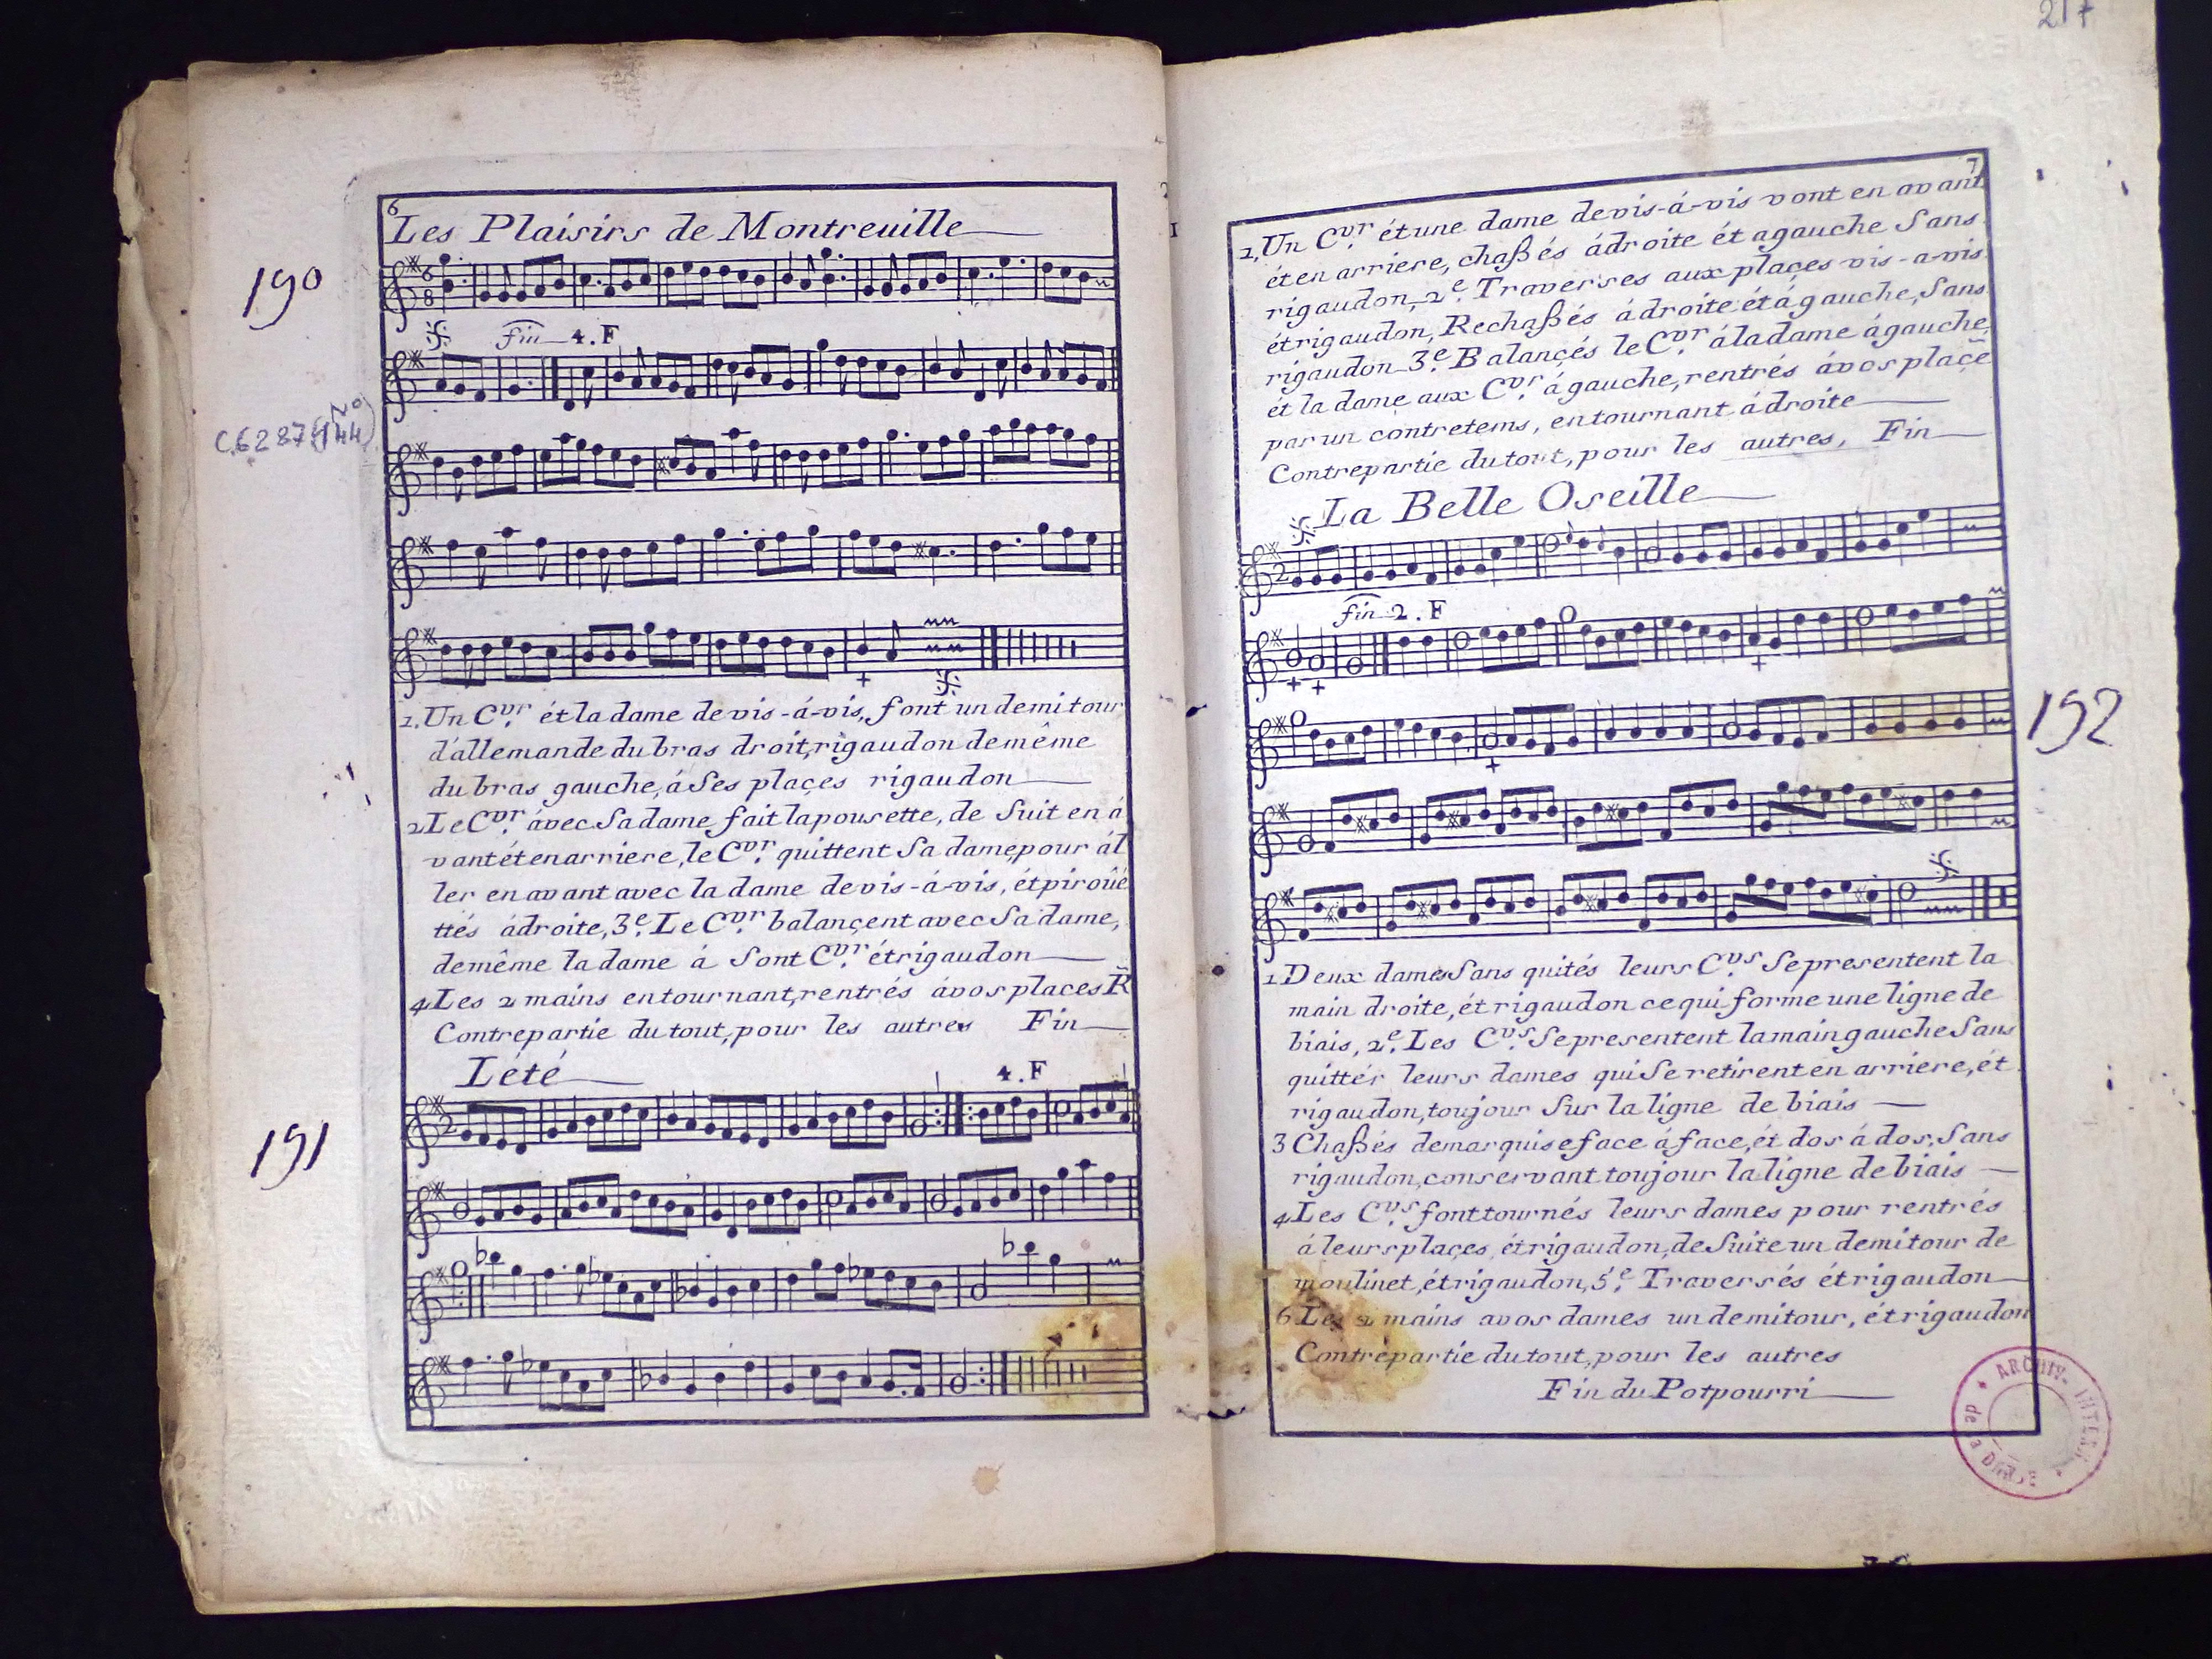 6
Les Plaisirs de Montreuille
190
6
8
fin 4. F
No
C.6287(144)
1. Un Cvr. ét la dame de vis-á-vis, font un demi tour
d'allemande du bras droit, rigaudon de même
du bras gauche, á Ses plaçes rigaudon
2 Le Cvr. ávec Sa dame fait la pousette, de Suit en á
vant ét en arriere, le Cvr. quittent Sa dame, pour ál
ler en avant avec la dame de vis-á-vis, ét piroüé
ttés ádroite, 3e. Le Cvr. balançent avec Sa dame,
de même la dame á Sont Cvr. ét rigaudon
4 Les 2 mains en tournant, rentrés ávos places R̃
Contrepartie du tout, pour les autres Fin
Lété
4. F
191
2
217
7
2, Un Cvr. ét une dame de vis-á-vis vont en avant
ét en arriere, chaßés ádroite ét agauche Sans
rigaudon, 2e. Traverses aux plaçes vis-a-vis
ét rigaudon, Rechaßés ádroite ét ágauche, Sans
rigaudon 3e. Balançés le Cvr. á la dame ágauche,
ét la dame aux Cvr. ágauche, rentrés ávos plaçẽ
par un contretems, en tournant ádroite
Contrepartie du tout, pour les autres, Fin
La Belle Oseille
2
fin 2. F
192
1 Deux dames Sans quités leurs Cvs. Se presentent la
main droite, ét rigaudon ce qui forme une ligne de
biais, 2e. Les Cvs. Se presentent la main gauche Sans
quittés leurs dames qui Se retirent en arriere, ét
rigaudon, toujour Sur la ligne de biais
3 Chaßés demarquise face á face, ét dos á dos, Sans
rigaudon, conservant toujour la ligne de biais
4 Les Cvs. font tournés leurs dames pour rentrés
á leurs plaçes, ét rigaudon, de Suite un demi tour de
moulinet, ét rigaudon, 5e. Traversés ét rigaudon
6 Les 2 mains avos dames un demi tour, ét rigaudon
Contrepartie du tout, pour les autres
Fin du Potpourri
ARCHIV. INTER.
de la DANSE